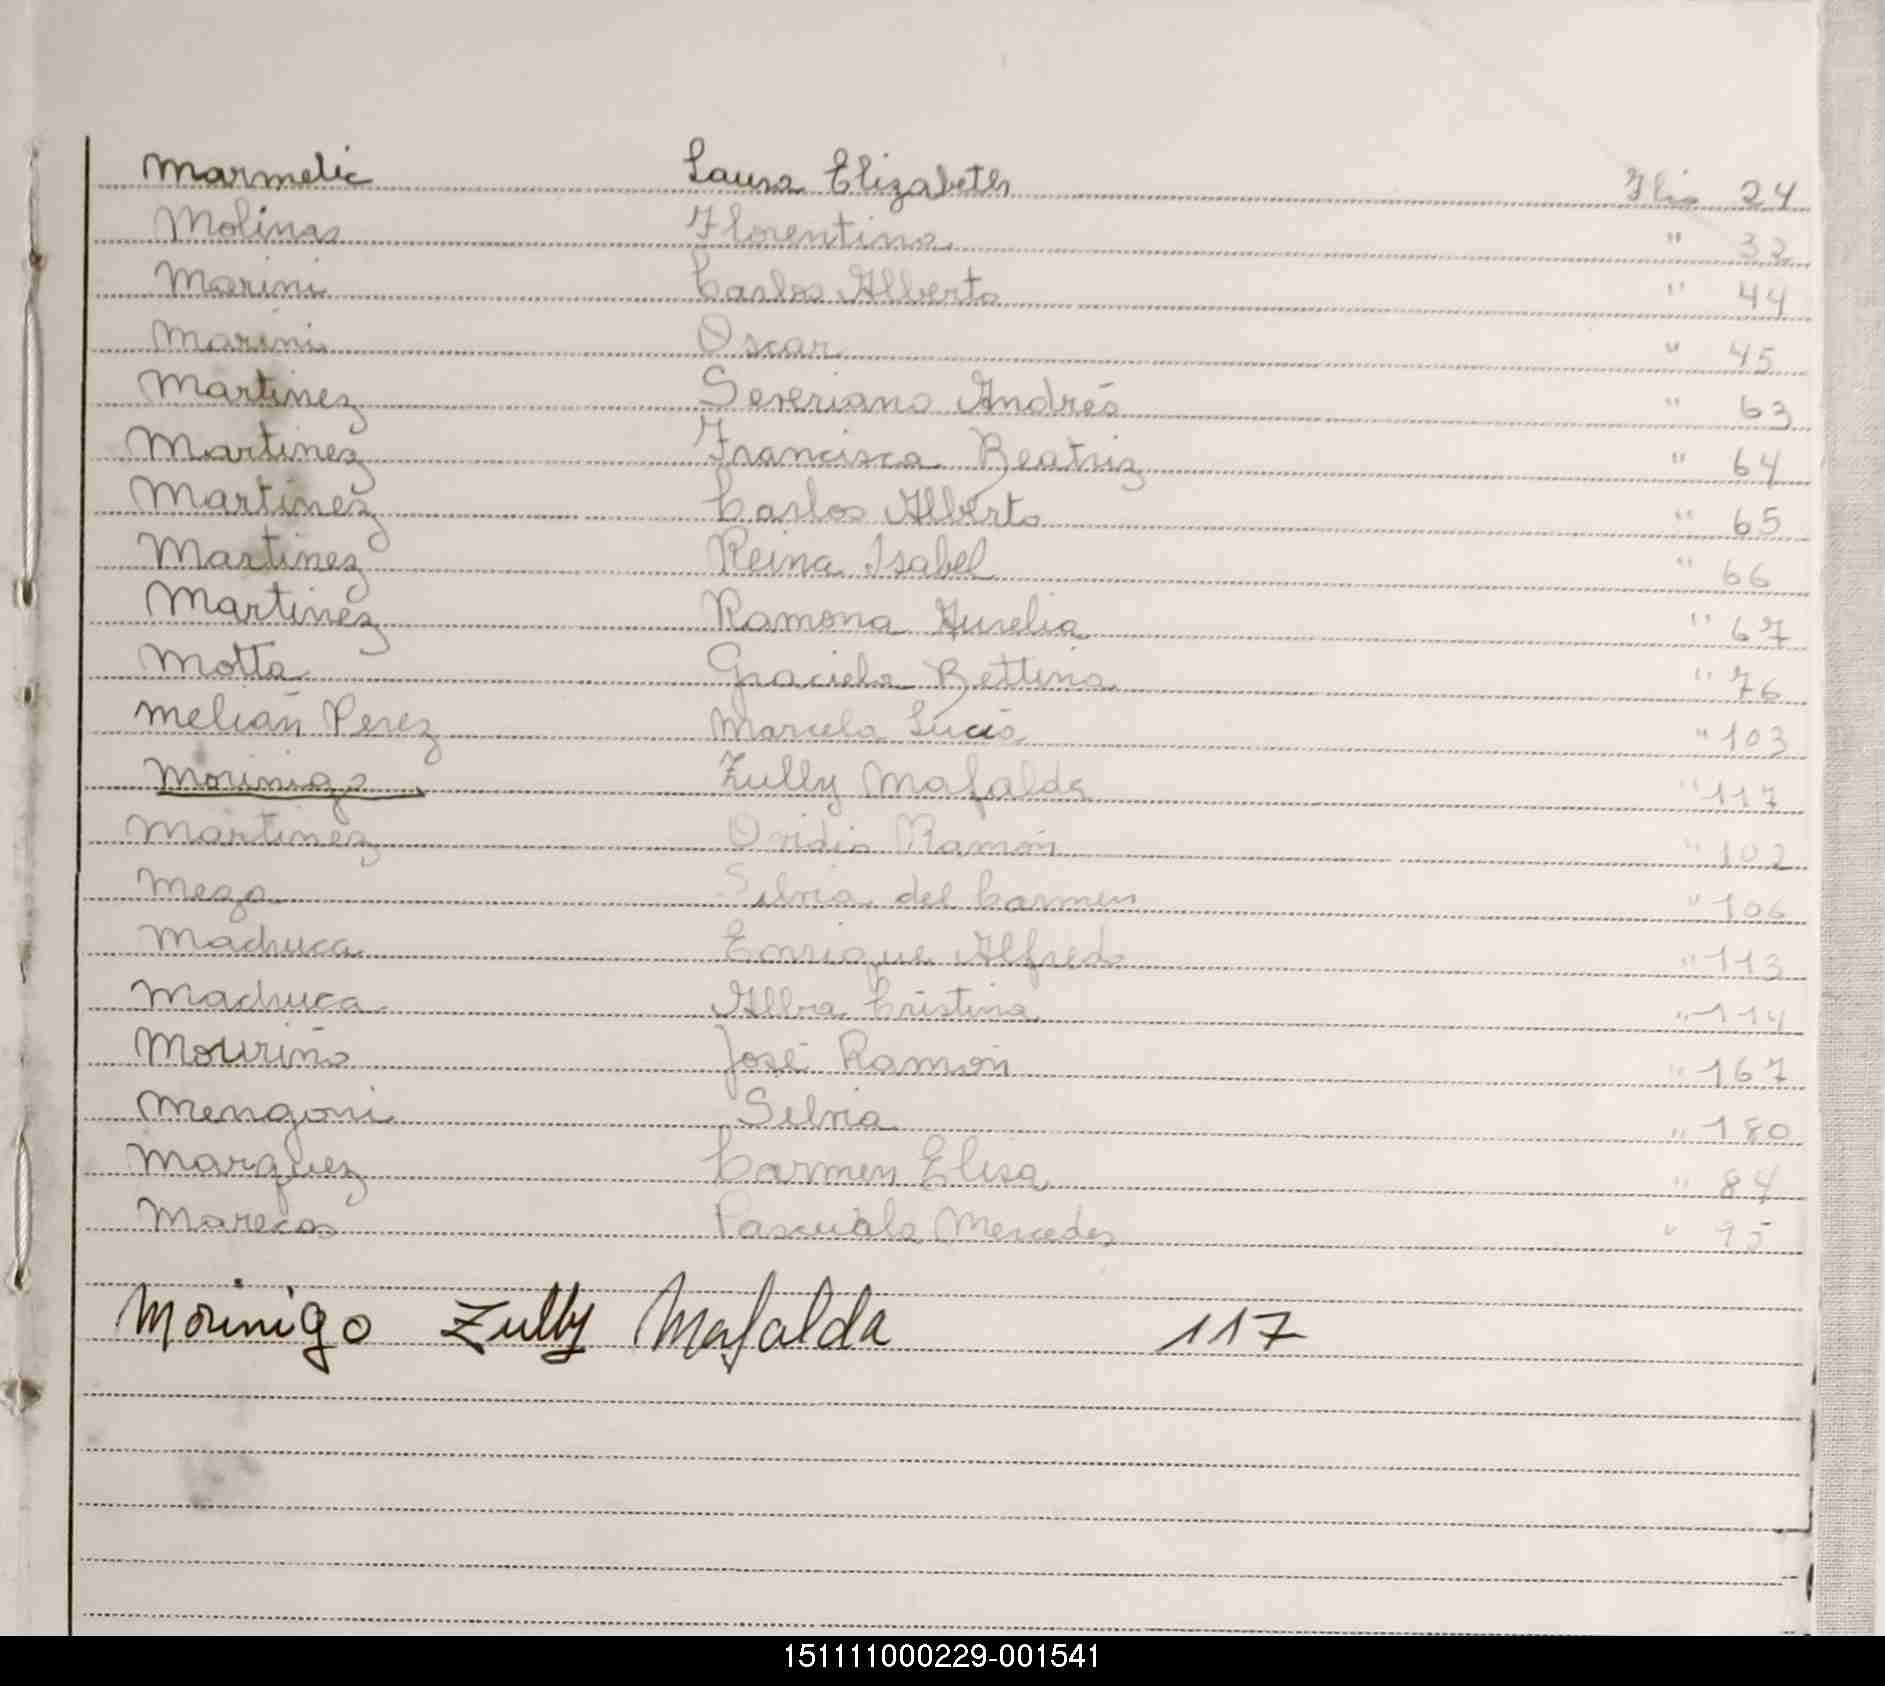 Marmelic Laura Elizabeth Flio 24
Molinas Florentina " 32
Marini Carlos Alberto " 44
Marini Oscar " 45
Martinez Severiano Andrés " 63
Martinez Francisca Beatriz " 64
Martinez Carlos Alberto " 65
Martinez Reina Isabel " 66
Martinez Ramona Aurelia " 67
Motta Graciela Bettina " 76
Melián Perez Marcela Lucía " 103
Morinigo Zully Mafalda " 117
Martinez Ovidio Ramón " 102
Meza Silvia del Carmen " 106
Machuca Enrique Alfredo " 113
Machuca Alba Cristina " 114
Mouriño José Ramón " 167
Mengoni Silvia " 180
Marquez Carmen Elisa " 84
Marecos Pascuala Mercedes " 95
Morinigo Zully Mafalda 117
151111000229-001541